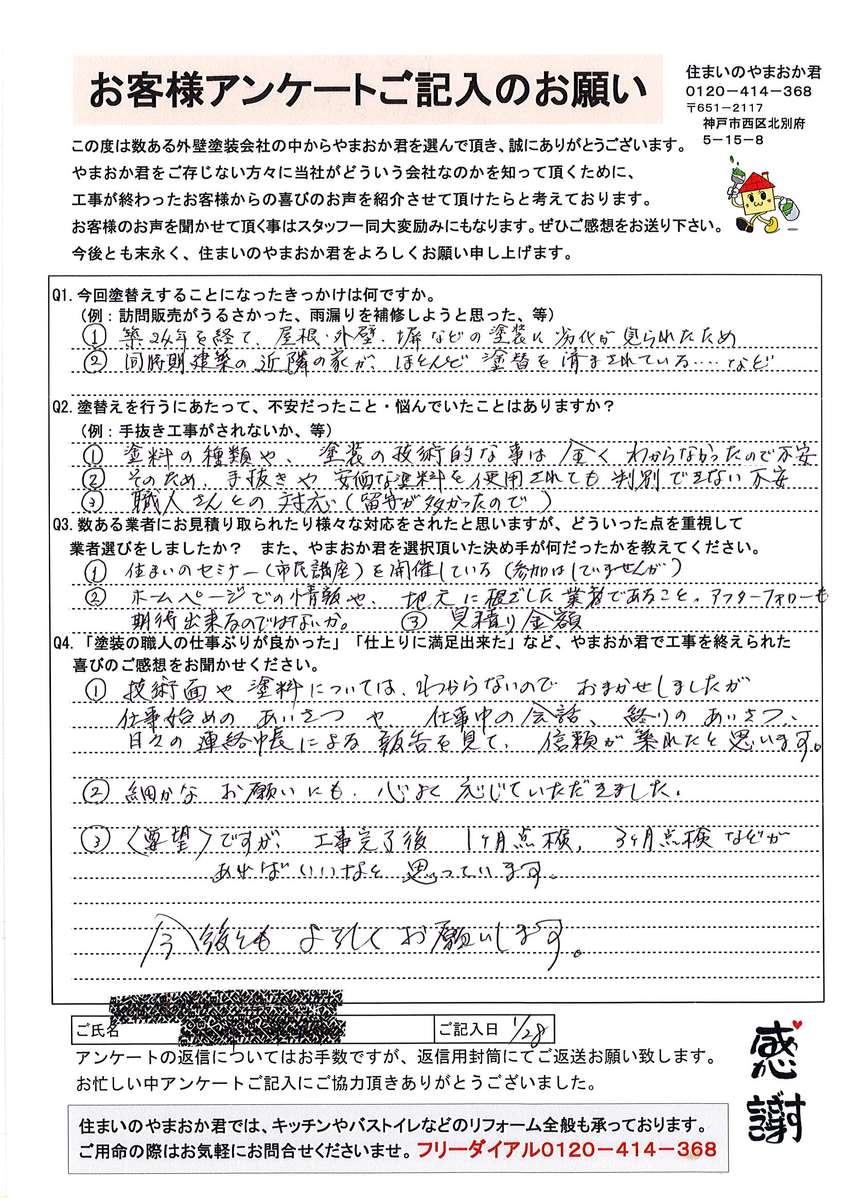 お客様アンケートご記入のお願い
住まいのやまおか君
0120-414-368
〒651-2117
神戸市西区北別府
5-15-8
この度は数ある外壁塗装会社の中からやまおか君を選んで頂き、誠にありがとうございます。
やまおか君をご存じない方々に当社がどういう会社なのかを知って頂くために、
工事が終わったお客様からの喜びのお声を紹介させて頂けたらと考えております。
お客様のお声を聞かせて頂く事はスタッフ一同大変励みにもなります。ぜひご感想をお送り下さい。
今後とも末永く、住まいのやまおか君をよろしくお願い申し上げます。
Q1. 今回塗替えすることになったきっかけは何ですか。
（例：訪問販売がうるさかった、雨漏りを補修しようと思った、等）
① 築24年を経て、屋根・外壁・塀などの塗装に劣化が見られたため
② 同時期建築の近隣の家が、ほとんど塗替を済まされている…. など
Q2. 塗替えを行うにあたって、不安だったこと・悩んでいたことはありますか？
（例：手抜き工事がされないか、等）
① 塗料の種類や、塗装の技術的な事は全くわからなかったので不安
② そのため、手抜きや安価な塗料を使用されても判別できない不安
③ 職人さんとの対応（留守が多かったので）
Q3. 数ある業者にお見積り取られたり様々な対応をされたと思いますが、どういった点を重視して
業者選びをしましたか？ また、やまおか君を選択頂いた決め手が何だったかを教えてください。
① 住まいのセミナー（市民講座）を開催している（参加はしていませんが）
② ホームページでの情報や、地元に根ざした業者であること。アフターフォローも
期待出来るのではないか。 ③ 見積り金額
Q4. 「塗装の職人の仕事ぶりが良かった」「仕上りに満足出来た」など、やまおか君で工事を終えられた
喜びのご感想をお聞かせください。
① 技術面や塗料については、わからないので おまかせしましたが
仕事始めの あいさつ や 仕事中の会話、終りのあいさつ、
日々の連絡帳による報告を見て、信頼が築れたと思います。
② 細かな お願いにも、心よく応じていただきました。
③ 〈要望〉ですが、工事完了後 1ヶ月点検, 3ヶ月点検などが
あればいいなと 思っています。
今後とも よろしくお願いします。
ご氏名
ご記入日 1/28
アンケートの返信についてはお手数ですが、返信用封筒にてご返送お願い致します。
お忙しい中アンケートご記入にご協力頂きありがとうございました。
感謝
住まいのやまおか君では、キッチンやバストイレなどのリフォーム全般も承っております。
ご用命の際はお気軽にお問合せくださいませ。フリーダイアル0120-414-368